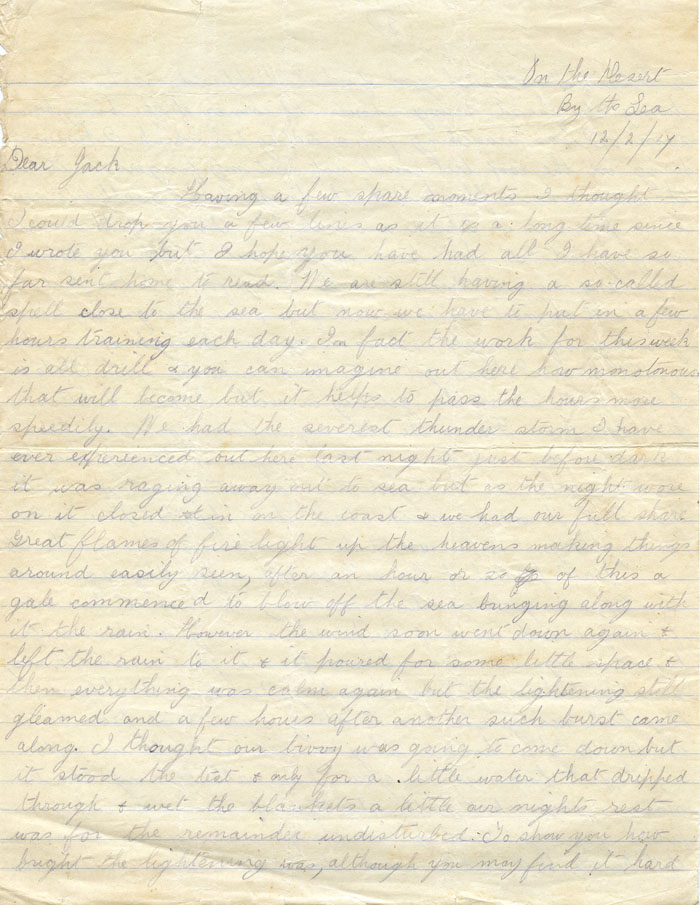 On the Desert
By the Sea
12/2/17
Dear Jack
Having a few spare moments I thought
I could drop you a few lines as it is a long time since
I wrote you but I hope you have had all I have so
far sent home to read. We are still having a so-called
spell close to the sea but now we have to put in a few
hours training each day. In fact the work for this week
is all drill & you can imagine out here how monotonous
that will become but it helps to pass the hours more
speedily. We had the severest thunder storm I have
ever experienced out here last night just before dark
it was raging away out to sea but as the night wore
on it closed in on the coast & we had our full share
Great flames of fire light up the heavens making things
around easily seen, after an hour or so of this a
gale commenced to blow off the sea bringing along with
it the rain. However the wind soon went down again &
left the rain to it & it poured for some little space &
then everything was calm again but the lightening still
gleamed and a few hours after another such burst came
along. I thought our bivvy was going to come down but
it stood the test & only for a little water that dripped
through & wet the blankets a little our nights rest
was for the remainder undisturbed. To show you how
bright the lightening was, although you may find it hard